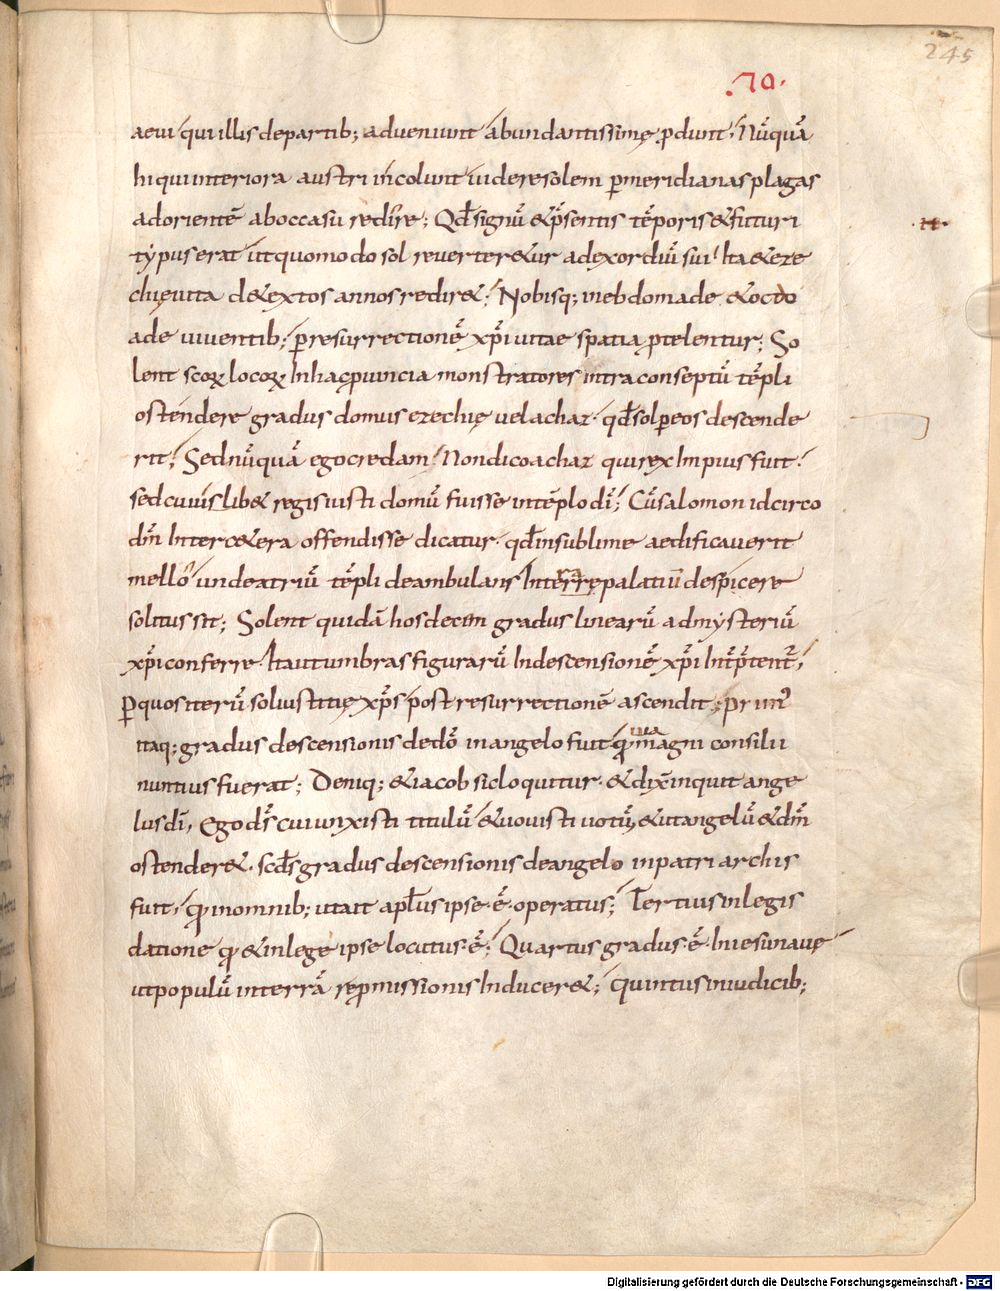 245
.70.
aeui qui illis departib; adueniunt abundantissimę pdunt; Nūquā
hi qui interiora austri incolunt uidere solem p meridianas plagas
ad orientē ab occasu redire; Qđ signū & p̄sentis tēporis & futuri
typus erat ut quomodo sol reuerter&ur ad exordiū sui Ita & eze
chię uita d&extos annos redir&; Nobisq; in ebdomade & ocdo
ade uiuentib; p resurrectionē xp̄i uitae spatia ptelentur; So
lent scoꝝ locoꝝ In hac puincia monstratores intra conseptū tēpli
ostendere gradus domus ezechię uel achaz · qđ sol p eos descende
rit; Sed nūquā ego credam Non dico achaz qui rex Impius fuit
sed cuiuslib& regis iusti domū fuisse in tēplo dī; Cū salomon idcirco
dm̄ Inter c&era offendisse dicatur · qđ in sublime aedificauerit
mello unde atriū tēpli deambulans Interrę palatiū despicere
solitus sit; Solent quidā hos decem gradus linearū ad mysteriū
xp̄i conferre · Ita ut umbras figurarū In descensionē xp̄i Int̄p̄tent̄;
p quos iterū sol iustitię xp̄s post resurrectionē ascendit; primꝰ
itaq; gradus descensionis de dō in angelo fuit qm̄ magni consilii
nuntius fuerat; Deniq; & iacob sic loquitur · & dix̄ inquit ange
lus dī, Ego ds̄ cui unxisti titulū & uouisti uotū, & ut angelū & dm̄
ostender& · scđs gradus descensionis de angelo in patriarchis
fuit, qm̄ in omnib; ut ait apłus ipse · ē · operatus; Tertius in legis
datione qm̄ & in lege ipse locutus · ē; Quartus gradus · ē · In iesu naue
ut populū in terrā repmissionis Inducer&; quintus in iudicib;
Digitalisierung gefördert durch die Deutsche Forschungsgemeinschaft - DFG